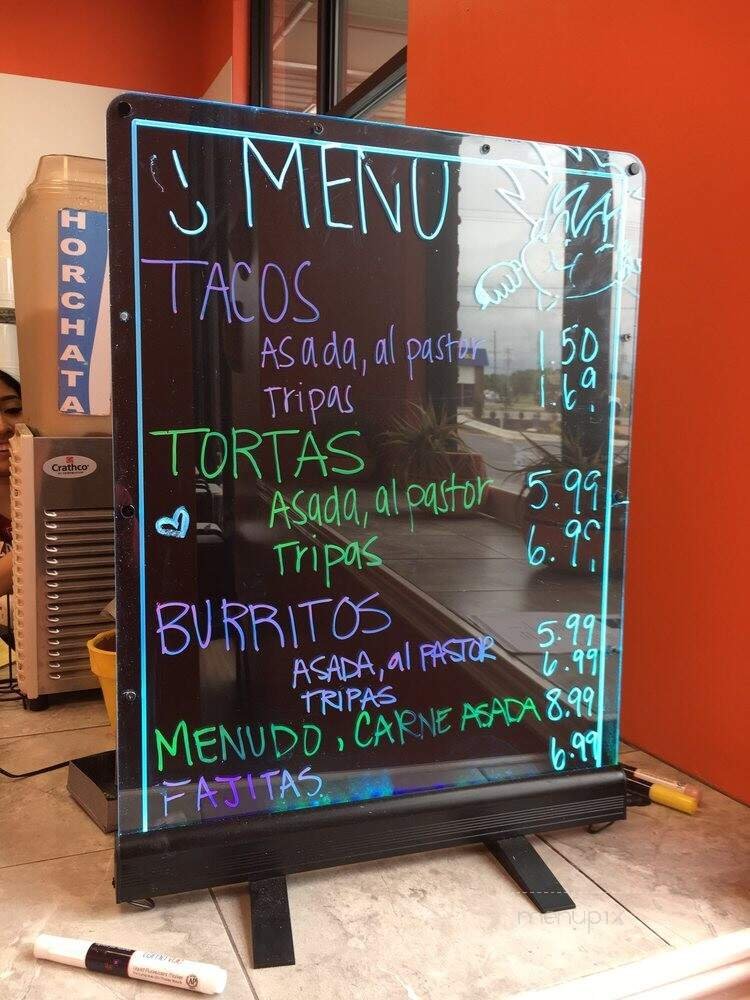 MENU
TACOS
Asada, al pastor 1.50
Tripas 1.69
TORTAS
Asada, al pastor 5.99
Tripas 6.99
BURRITOS
ASADA, al PASTOR 5.99
TRIPAS 6.99
MENUDO, CARNE ASADA 8.99
FAJITAS 6.99
HORCHATA
Crathco
menupix